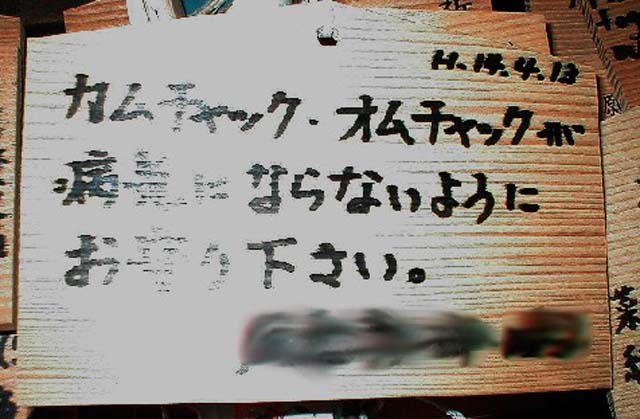 H.14.4.13
カムチャック・オムチャックが
病竜にならないように
お守り下さい。